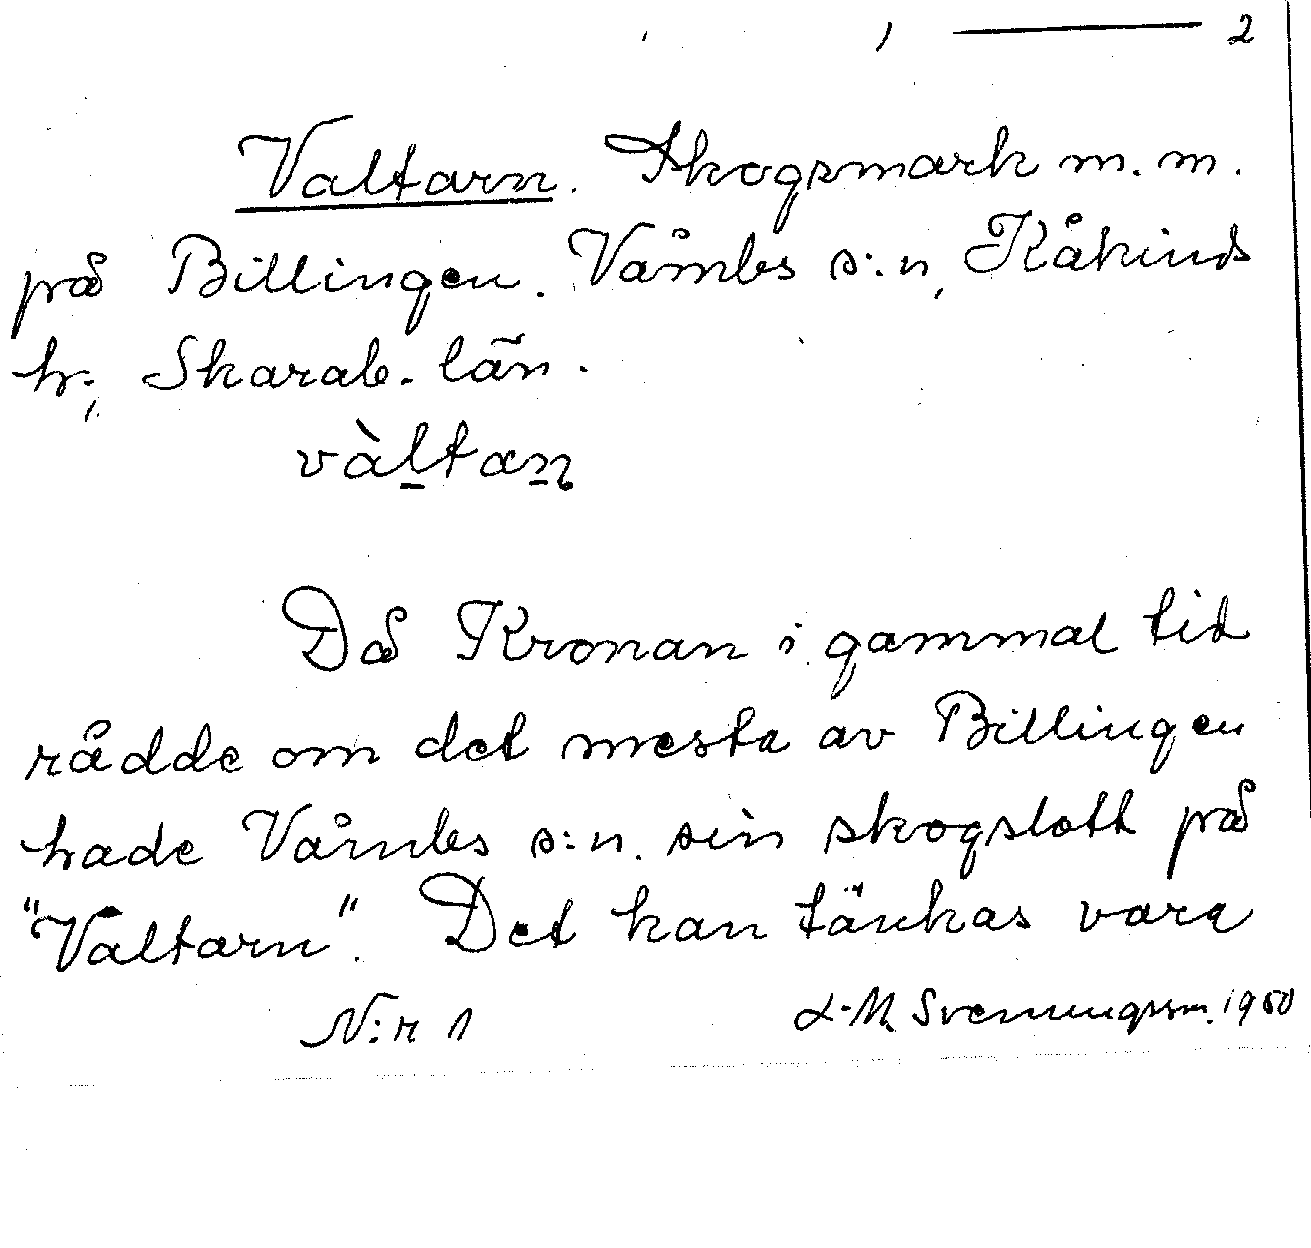 2
Valtarn. Skogsmark m.m.
på Billingen. Våmbs s:n, Kåkinds
h:, Skarab. län.
vàltan
Då Kronan i gammal tid
rådde om det mesta av Billingen
hade Våmbs s:n. sin skogslott på
"Valtarn". Det kan tänkas vara
N:r 1 L.M. Svenungsson. 1950